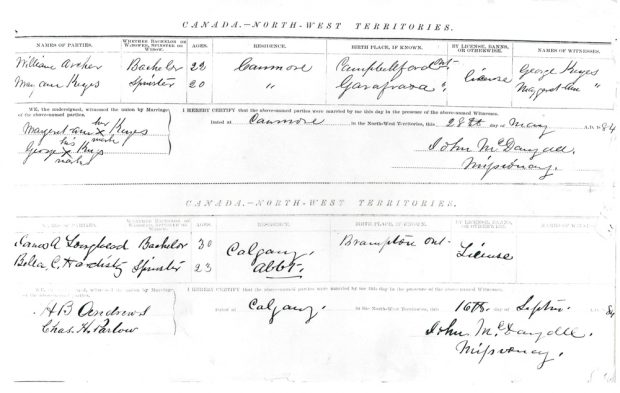 CANADA.—NORTH-WEST TERRITORIES.
NAMES OF PARTIES. WHETHER BACHELOR OR WIDOWER, SPINSTER OR WIDOW. AGES. RESIDENCE. BIRTH PLACE, IF KNOWN. BY LICENSE, BANNS, OR OTHERWISE. NAMES OF WITNESSES.
William Archer Bachelor 22 Canmore Campbellford Ont License George Keyes
May ann Keyes Spinster 20 " Garafraxa " Margret Ann "
WE, the undersigned, witnessed the union by Marriage of the above-named parties. I HEREBY CERTIFY that the above-named parties were married by me this day in the presence of the above-named Witnesses.
Dated at Canmore in the North-West Territories, this 28th day of May A.D. 1884
Margret Ann her X mark Keyes
George his X mark Keys
John McDougall.
Missionary.
CANADA.—NORTH-WEST TERRITORIES.
NAMES OF PARTIES. WHETHER BACHELOR OR WIDOWER, SPINSTER OR WIDOW. AGES. RESIDENCE. BIRTH PLACE, IF KNOWN. BY LICENSE, BANNS, OR OTHERWISE. NAMES OF WITNESSES.
James A Longheed Bachelor 30 Calgary. Brampton Ont. License
Belle C. Hardisty Spinster 23 Abbt.
WE, the undersigned, witnessed the union by Marriage of the above-named parties. I HEREBY CERTIFY that the above-named parties were married by me this day in the presence of the above-named Witnesses.
Dated at Calgary. in the North-West Territories, this 16th. day of Septm. A.D. 84
A B Andrews
Chas. H. Parlow
John McDougall.
Missionary.